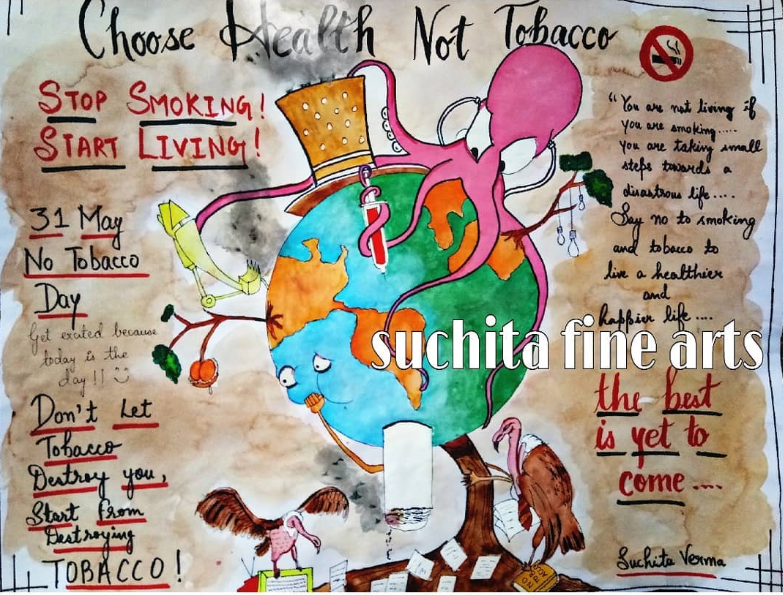 Choose Health Not Tobacco
STOP SMOKING!
START LIVING!
31 May
No Tobacco
Day
Get excited because
today is the
day!!
Don't Let
Tobacco
Destroy you,
Start from
Destroying
TOBACCO!
"You are not living if
you are smoking.....
you are taking small
steps towards a
disastrous life....
Say no to smoking
and tobacco to
live a healthier
and
happier life....
suchita fine arts
the best
is yet to
come....
Suchita Verma